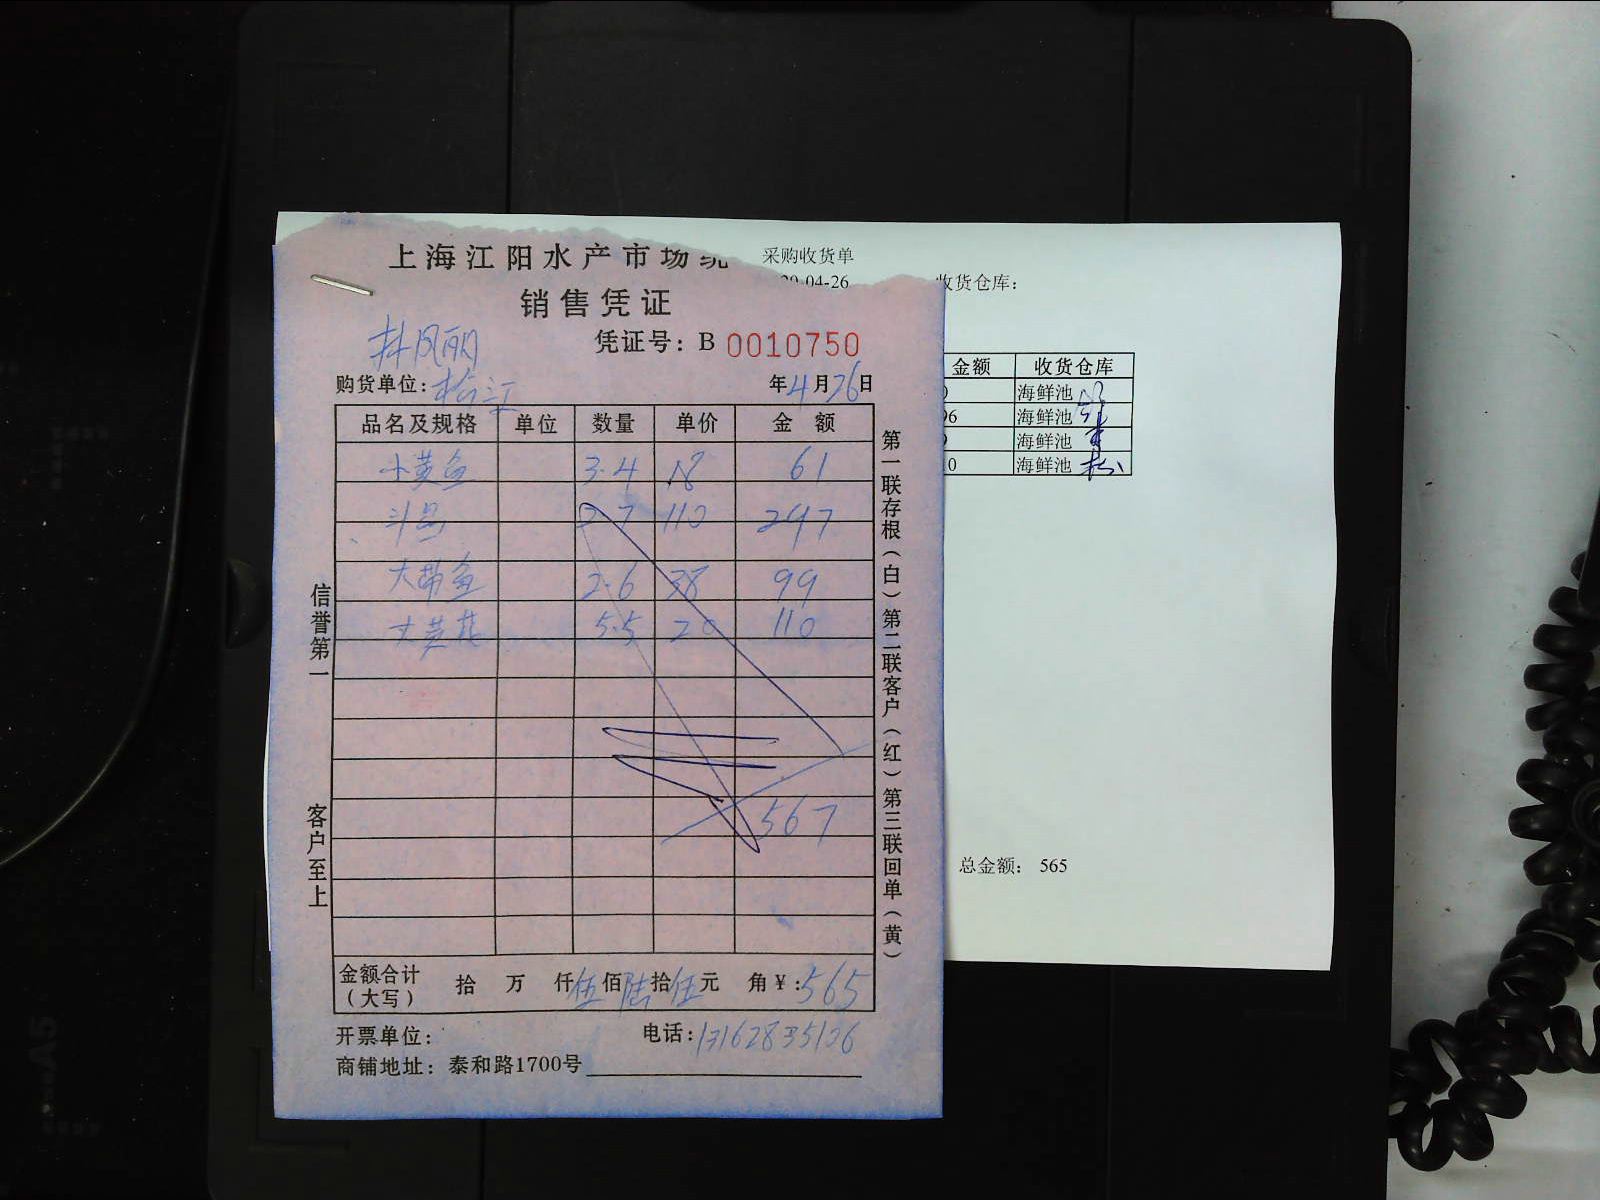 上海江阳水产市场统
销售凭证
凭证号：B 0010750
购货单位：松江
年4月26日
品名及规格 单位 数量 单价 金额
小黄鱼 3.4 18 61
2.7 110 297
大带鱼 2.6 38 99
5.5 20 110
567
金额合计（大写） 拾 万 仟伍佰陆拾伍元 角¥：565
开票单位：
电话：13162835126
商铺地址：泰和路1700号
信誉第一
客户至上
第一联存根（白）第二联客户（红）第三联回单（黄）
采购收货单
20-04-26 收货仓库：
金额 收货仓库
海鲜池
96 海鲜池
海鲜池
10 海鲜池
总金额： 565